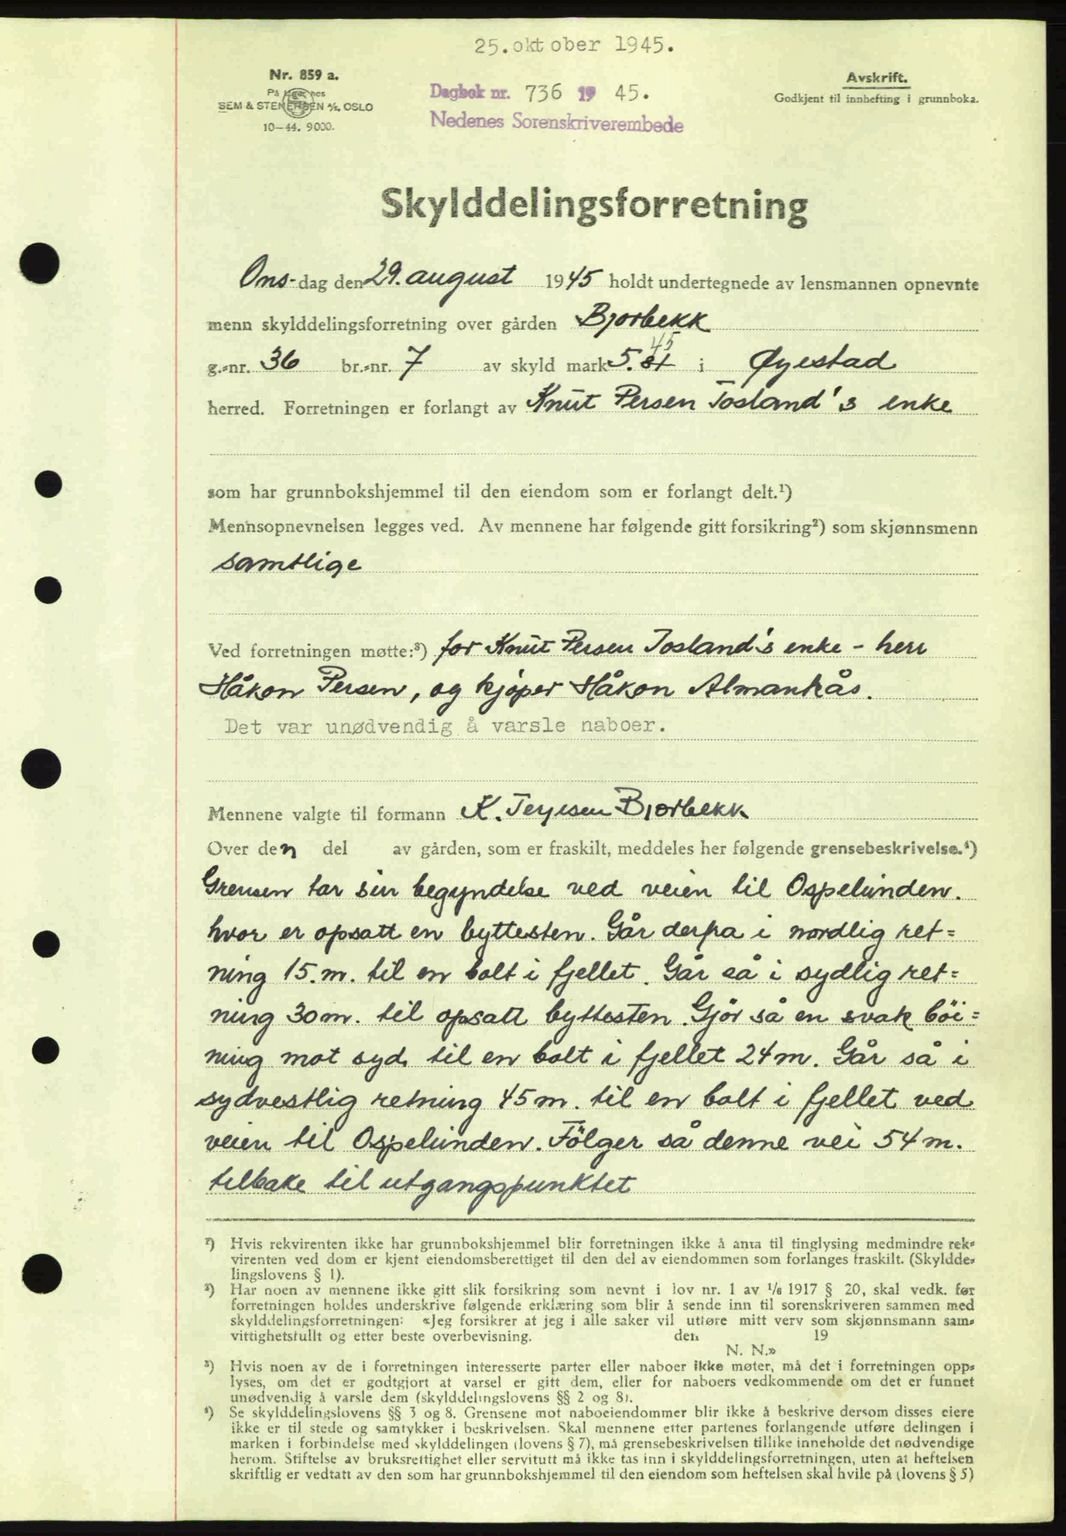 25.oktober 1945.
Nr. 859 a.
På lager hos
SEM & STENERSEN A/S. OSLO
10-44. 9000.
Dagbok nr. 736 1945.
Nedenes Sorenskriverembede
Avskrift.
Godkjent til innhefting i grunnboka.
Skylddelingsforretning
Ons-dag den 29. august 1945 holdt undertegnede av lensmannen opnevnte
menn skylddelingsforretning over gården Bjorbekk
g.-nr. 36 br.-nr. 7 av skyld mark 5.45 i Øyestad
herred. Forretningen er forlangt av Knut Persen Tosland's enke
som har grunnbokshjemmel til den eiendom som er forlangt delt.¹)
Mennsopnevnelsen legges ved. Av mennene har følgende gitt forsikring²) som skjønnsmenn
samtlige
Ved forretningen møtte:³) for Knut Persen Tosland's enke - herr
Håkon Persen, og kjøper Håkon Almankås.
Det var unødvendig å varsle naboer.
Mennene valgte til formann K. Terjesen Bjorbekk
Over den del av gården, som er fraskilt, meddeles her følgende grensebeskrivelse.⁴)
Grensen tar sin begyndelse ved veien til Ospelunden.
hvor er opsatt en byttesten. Går derfra i nordlig ret=
ning 15.m. til en bolt i fjellet. Går så i sydlig ret=
ning 30m. til opsatt byttesten. Gjör så en svak böi=
ning mot syd til en bolt i fjellet 24m. Går så i
sydvestlig retning 45m. til en bolt i fjellet ved
veien til Ospelunden. Fölger så denne vei 54m.
tilbake til utgangspunktet
¹) Hvis rekvirenten ikke har grunnbokshjemmel blir forretningen ikke å anta til tinglysing medmindre rek-
virenten ved dom er kjent eiendomsberettiget til den del av eiendommen som forlanges fraskilt. (Skyldde-
lingslovens § 1).
²) Har noen av mennene ikke gitt slik forsikring som nevnt i lov nr. 1 av 1/6 1917 § 20, skal vedk. før
forretningen holdes underskrive følgende erklæring som blir å sende inn til sorenskriveren sammen med
skylddelingsforretningen: «Jeg forsikrer at jeg i alle saker vil utføre mitt verv som skjønnsmann sam-
vittighetsfullt og etter beste overbevisning. den 19
N. N.»
³) Hvis noen av de i forretningen interesserte parter eller naboer ikke møter, må det i forretningen opp-
lyses, om det er godtgjort at varsel er gitt dem, eller for naboers vedkommende om det er funnet
unødvendig å varsle dem (skylddelingslovens §§ 2 og 8).
⁴) Se skylddelingslovens §§ 3 og 8. Grensene mot naboeiendommer blir ikke å beskrive dersom disses eiere
ikke er til stede og samtykker i beskrivelsen. Skal mennene etter partenes forlangende utføre delingen i
marken i forbindelse med skylddelingen (lovens § 7), må grensebeskrivelsen tillike inneholde det nødvendige
herom. Stiftelse av bruksrettighet eller servitutt må ikke tas inn i skylddelingsforretningen, uten at heftelsen
skriftlig er vedtatt av den som har grunnbokshjemmel til den eiendom som heftelsen skal hvile på (lovens § 5)